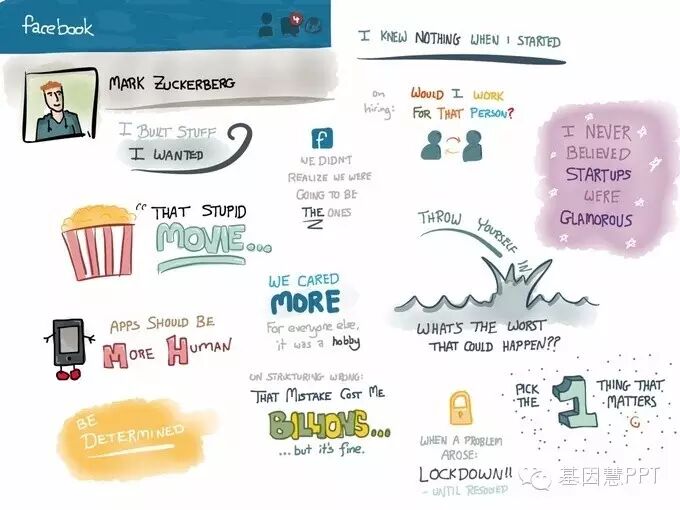 facebook
4
MARK ZUCKERBERG
I BUILT STUFF
I WANTED
f
WE DIDN'T
REALIZE WE WERE
GOING TO BE
THE ONES
"THAT STUPID
MOVIE...
WE CARED
MORE
For everyone else,
it was a hobby
APPS SHOULD BE
MORE HUMAN
BE
DETERMINED
ON STRUCTURING WRONG:
THAT MISTAKE COST ME
BILLIONS...
... but it's fine.
I KNEW NOTHING WHEN I STARTED
on
hiring:
WOULD I WORK
FOR THAT PERSON?
I NEVER
BELIEVED
STARTUPS
WERE
GLAMOROUS
THROW YOURSELF
IN
WHAT'S THE WORST
THAT COULD HAPPEN??
PICK
THE
1
THING THAT
MATTERS
WHEN A PROBLEM
AROSE:
LOCKDOWN!!
- UNTIL RESOLVED
基因慧PPT